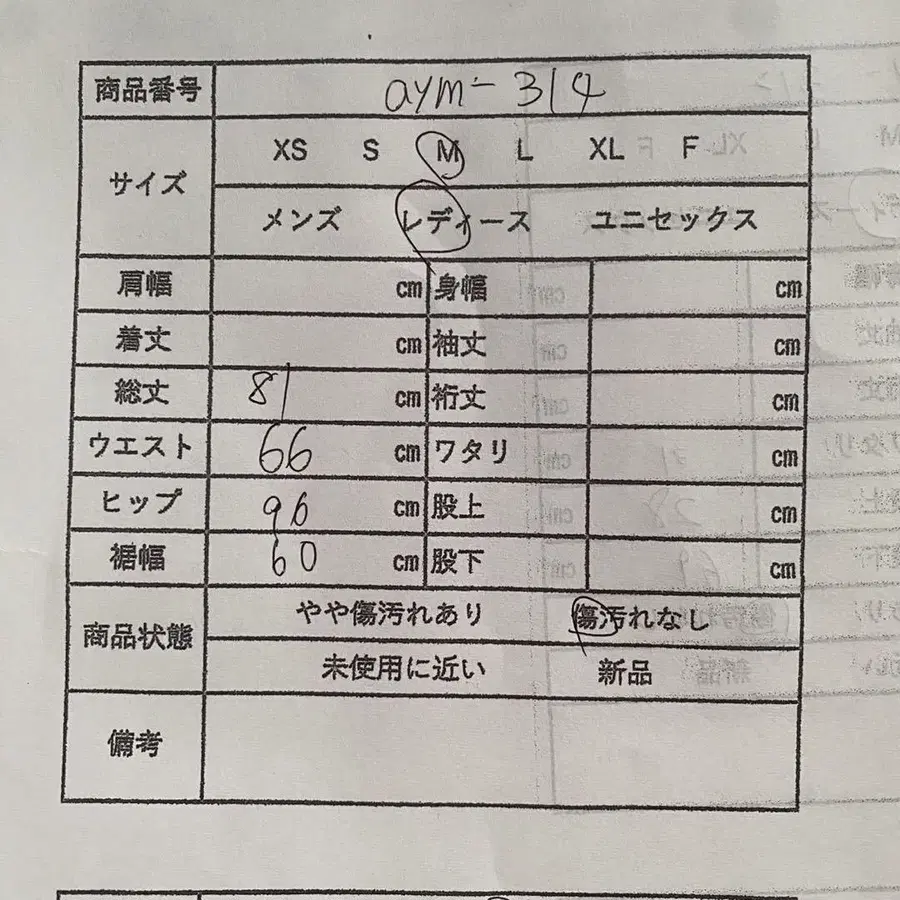 商品番号 aym-314
サイズ XS S M L XL F
メンズ レディース ユニセックス
肩幅 cm 身幅 cm
着丈 cm 袖丈 cm
総丈 81 cm 裄丈 cm
ウエスト 66 cm ワタリ cm
ヒップ 96 cm 股上 cm
裾幅 60 cm 股下 cm
商品状態 やや傷汚れあり 傷汚れなし
未使用に近い 新品
備考